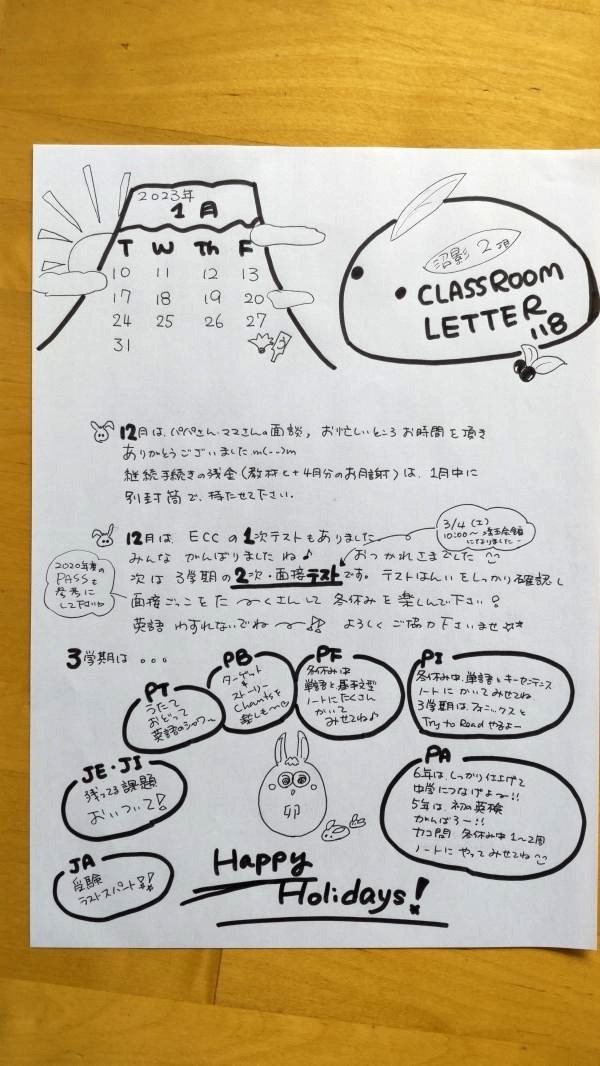 2023年
1月
T W Th F
10 11 12 13
17 18 19 20
24 25 26 27
31
沼影2丁目
CLASSROOM
LETTER
118
12月は、パパさん・ママさんの面談、お忙しいところ お時間を頂き
ありがとうございました m(--)m
継続手続きの残金(教材と+4月分のお月謝)は、1月中に
別封筒で、持たせて下さい。
12月は、ECCの1次テストもありました
みんな がんばりましたね♪ おつかれさまでした
次は 3学期の2次・面接テストです。テストはんいをしっかり確認し
面接ごっこをた〜くさんして 冬休みを楽しんで下さい!
英語 わすれないでね〜 よろしく ご協力 下さいませ
3/4(土)
10:00〜埼玉会館
になりましたー
2020年度の
PASSも
参考に
して下さい
3学期は...
PT
うたって
おどって
英語のシャワ〜
PB
ターゲット
+
ストーリー
Chantsを
楽しも〜
PF
冬休み中
単語と基本文型
ノートにたくさん
かいて
みせてね♪
PI
冬休み中、単語とキーセンテンス
ノートに かいてみせてね。
3学期は、フォニックスと
Try to Read やるよー
JE・JI
残ってる課題
おいついて!
卯
PA
6年は、しっかり仕上げて
中学につなげよー!!
5年は、初の英検
がんばろー!!
カコ問 冬休み中 1〜2回
ノートに やってみせてね
JA
受験
ラストスパート
Happy
Holidays!